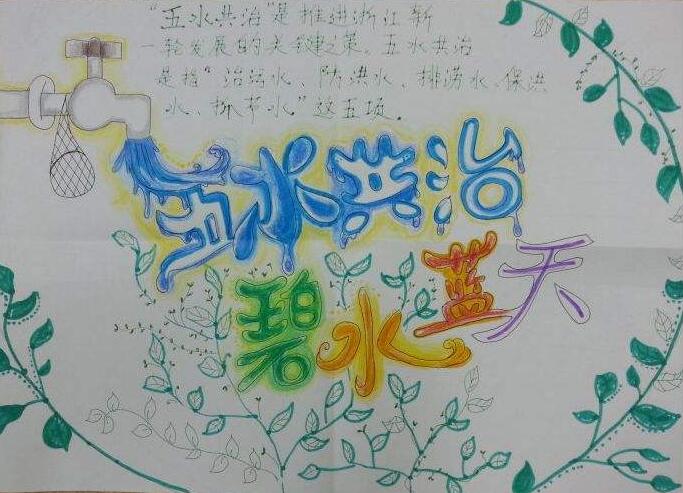 "五水共治"是推进浙江新
一轮发展的关键之策。五水共治
是指"治污水、防洪水、排涝水、保洪
水、抓节水"这五项。
五水共治
碧水蓝天